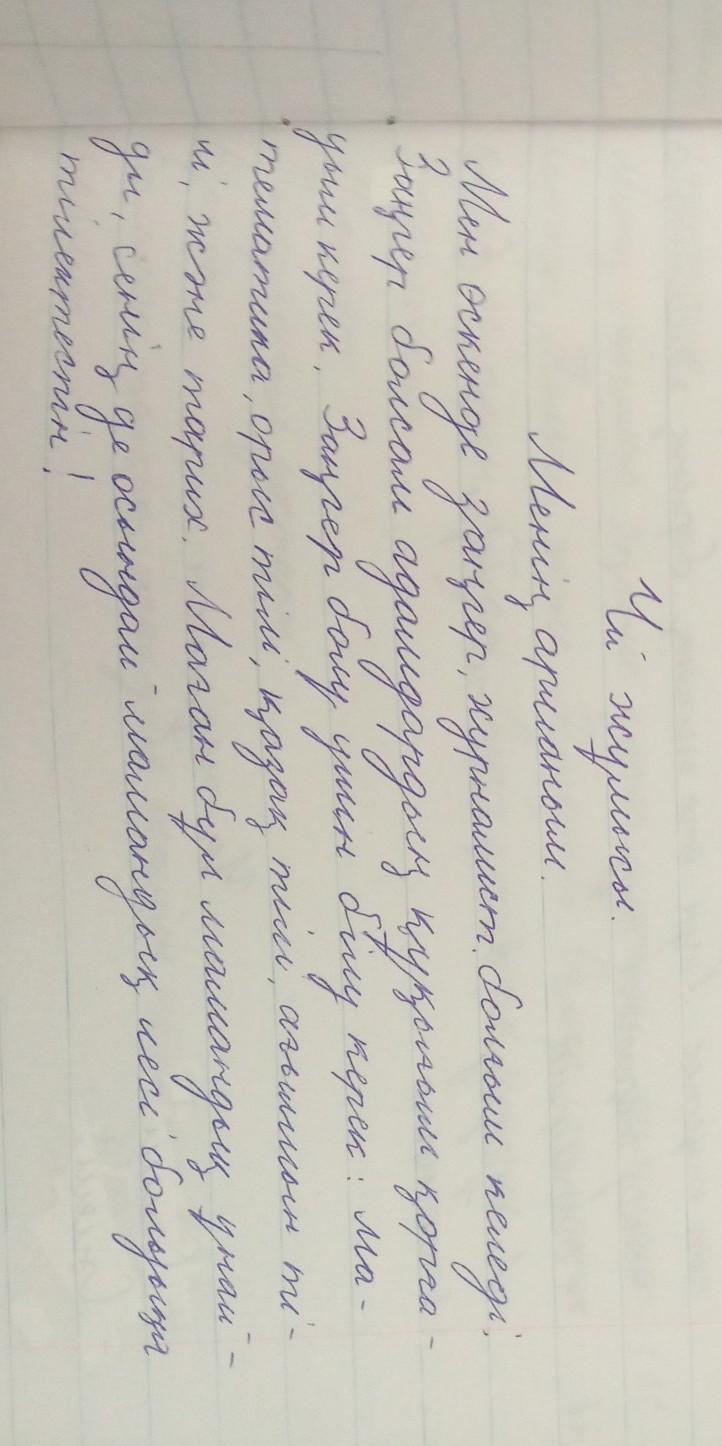 Үй жұмысы.
Менің арманым.
Мен өскенде заңгер, журналист болғым келеді.
Заңгер болсам адамдардың құқығын қорға-
уым керек. Заңгер болу үшін білу керек: ма-
тематика, орыс тілі, қазақ тілі, ағылшын ті-
лі, және тарих. Маған бұл мамандық ұнай-
ды, сенің де осындай мамандық иесі болуыңа
тілектеспін!